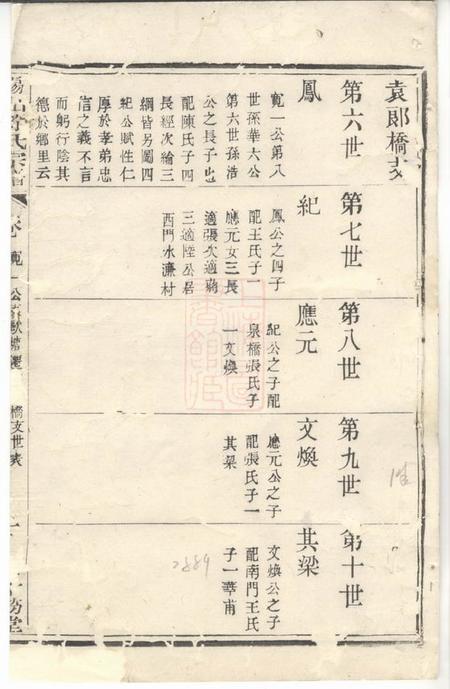 袁郎橋支
第六世
第七世
第八世
第九世
第十世
鳳
寬一公第八
世孫華六公
第六世孫浩
公之長子也
配陳氏子四
長經次繪三
綱皆另圖四
紀公賦性仁
厚於孝弟忠
信之義不言
而躬行陰其
德於鄉里云
紀
鳳公之四子
配王氏子一
應元女三長
適張次適蔣
三適陸公居
西門水濂村
應元
紀公之子配
泉橋張氏子
一文煥
文煥
應元公之子
配張氏子一
其梁
其梁
文煥公之子
配南門王氏
子一華甫
2889
氏宗譜
卷
寬一公
橋支世表
堂